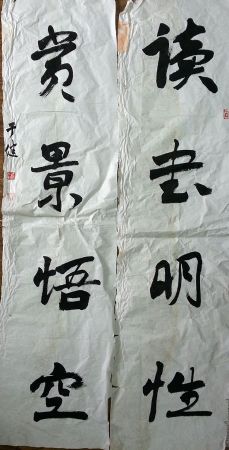 读书明性
赏景悟空